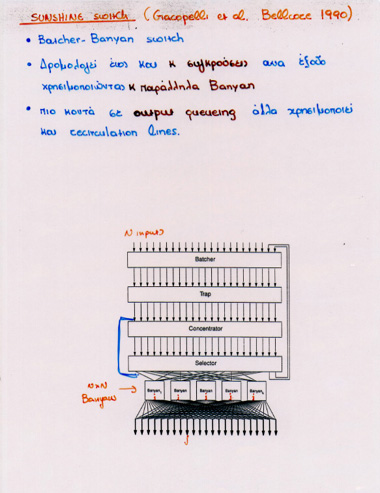 SUNSHINE switch (Giacopelli et al. Bellcore 1990)
• Batcher-Banyan switch
• Δρομολογεί έως και κ συγκρούσεις ανα έξοδο
χρησιμοποιώντας κ παράλληλα Banyan
• πιο κοντά σε output queueing άλλα χρησιμοποιεί
και recirculation lines.
N inputs
Batcher
Trap
Concentrator
Selector
N×N
Banyans
Banyan Banyan Banyan Banyan Banyan